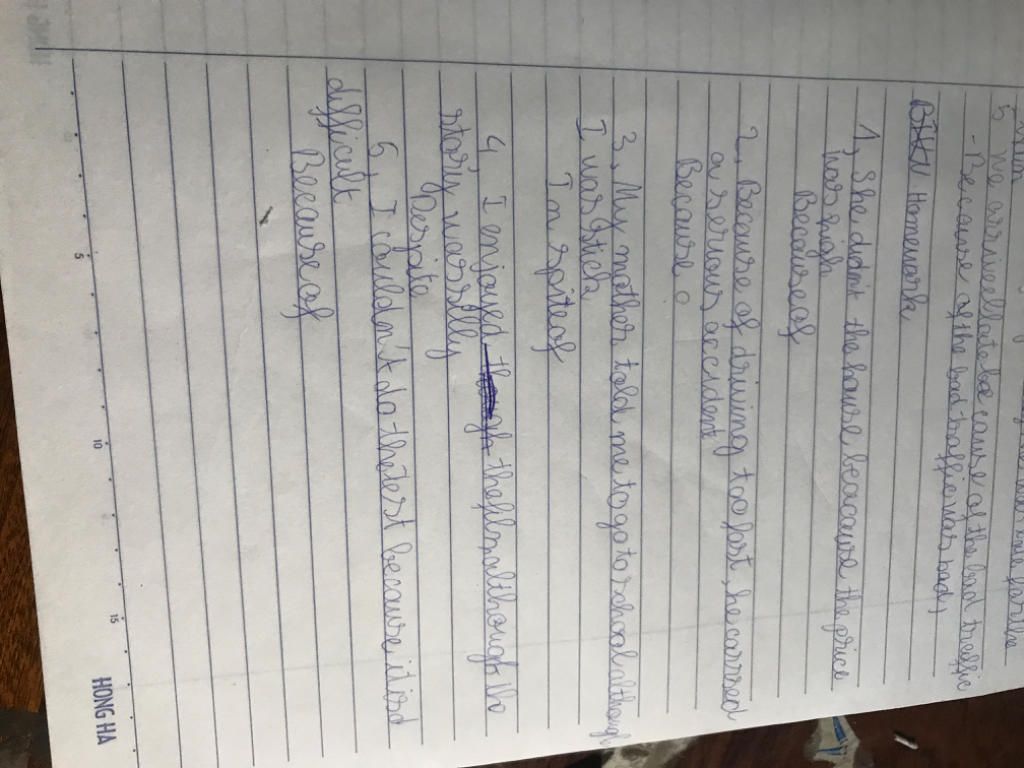 5 we arrived late be cause of the bad traffic
- Because of the bad traffic was bad,
BTVN Homework
1, She didn't the house beacause the price
was high
Because of
2, Because of driving too fast, he carsed
a serious accident
Because
3, My mother told me to go to school although
I was stick
In spite of
4, I enjoyed though the film although the
story was silly
Despite
5, I couldn't do the test because it isd
difficult
Because of
5
10
15
HONG HA